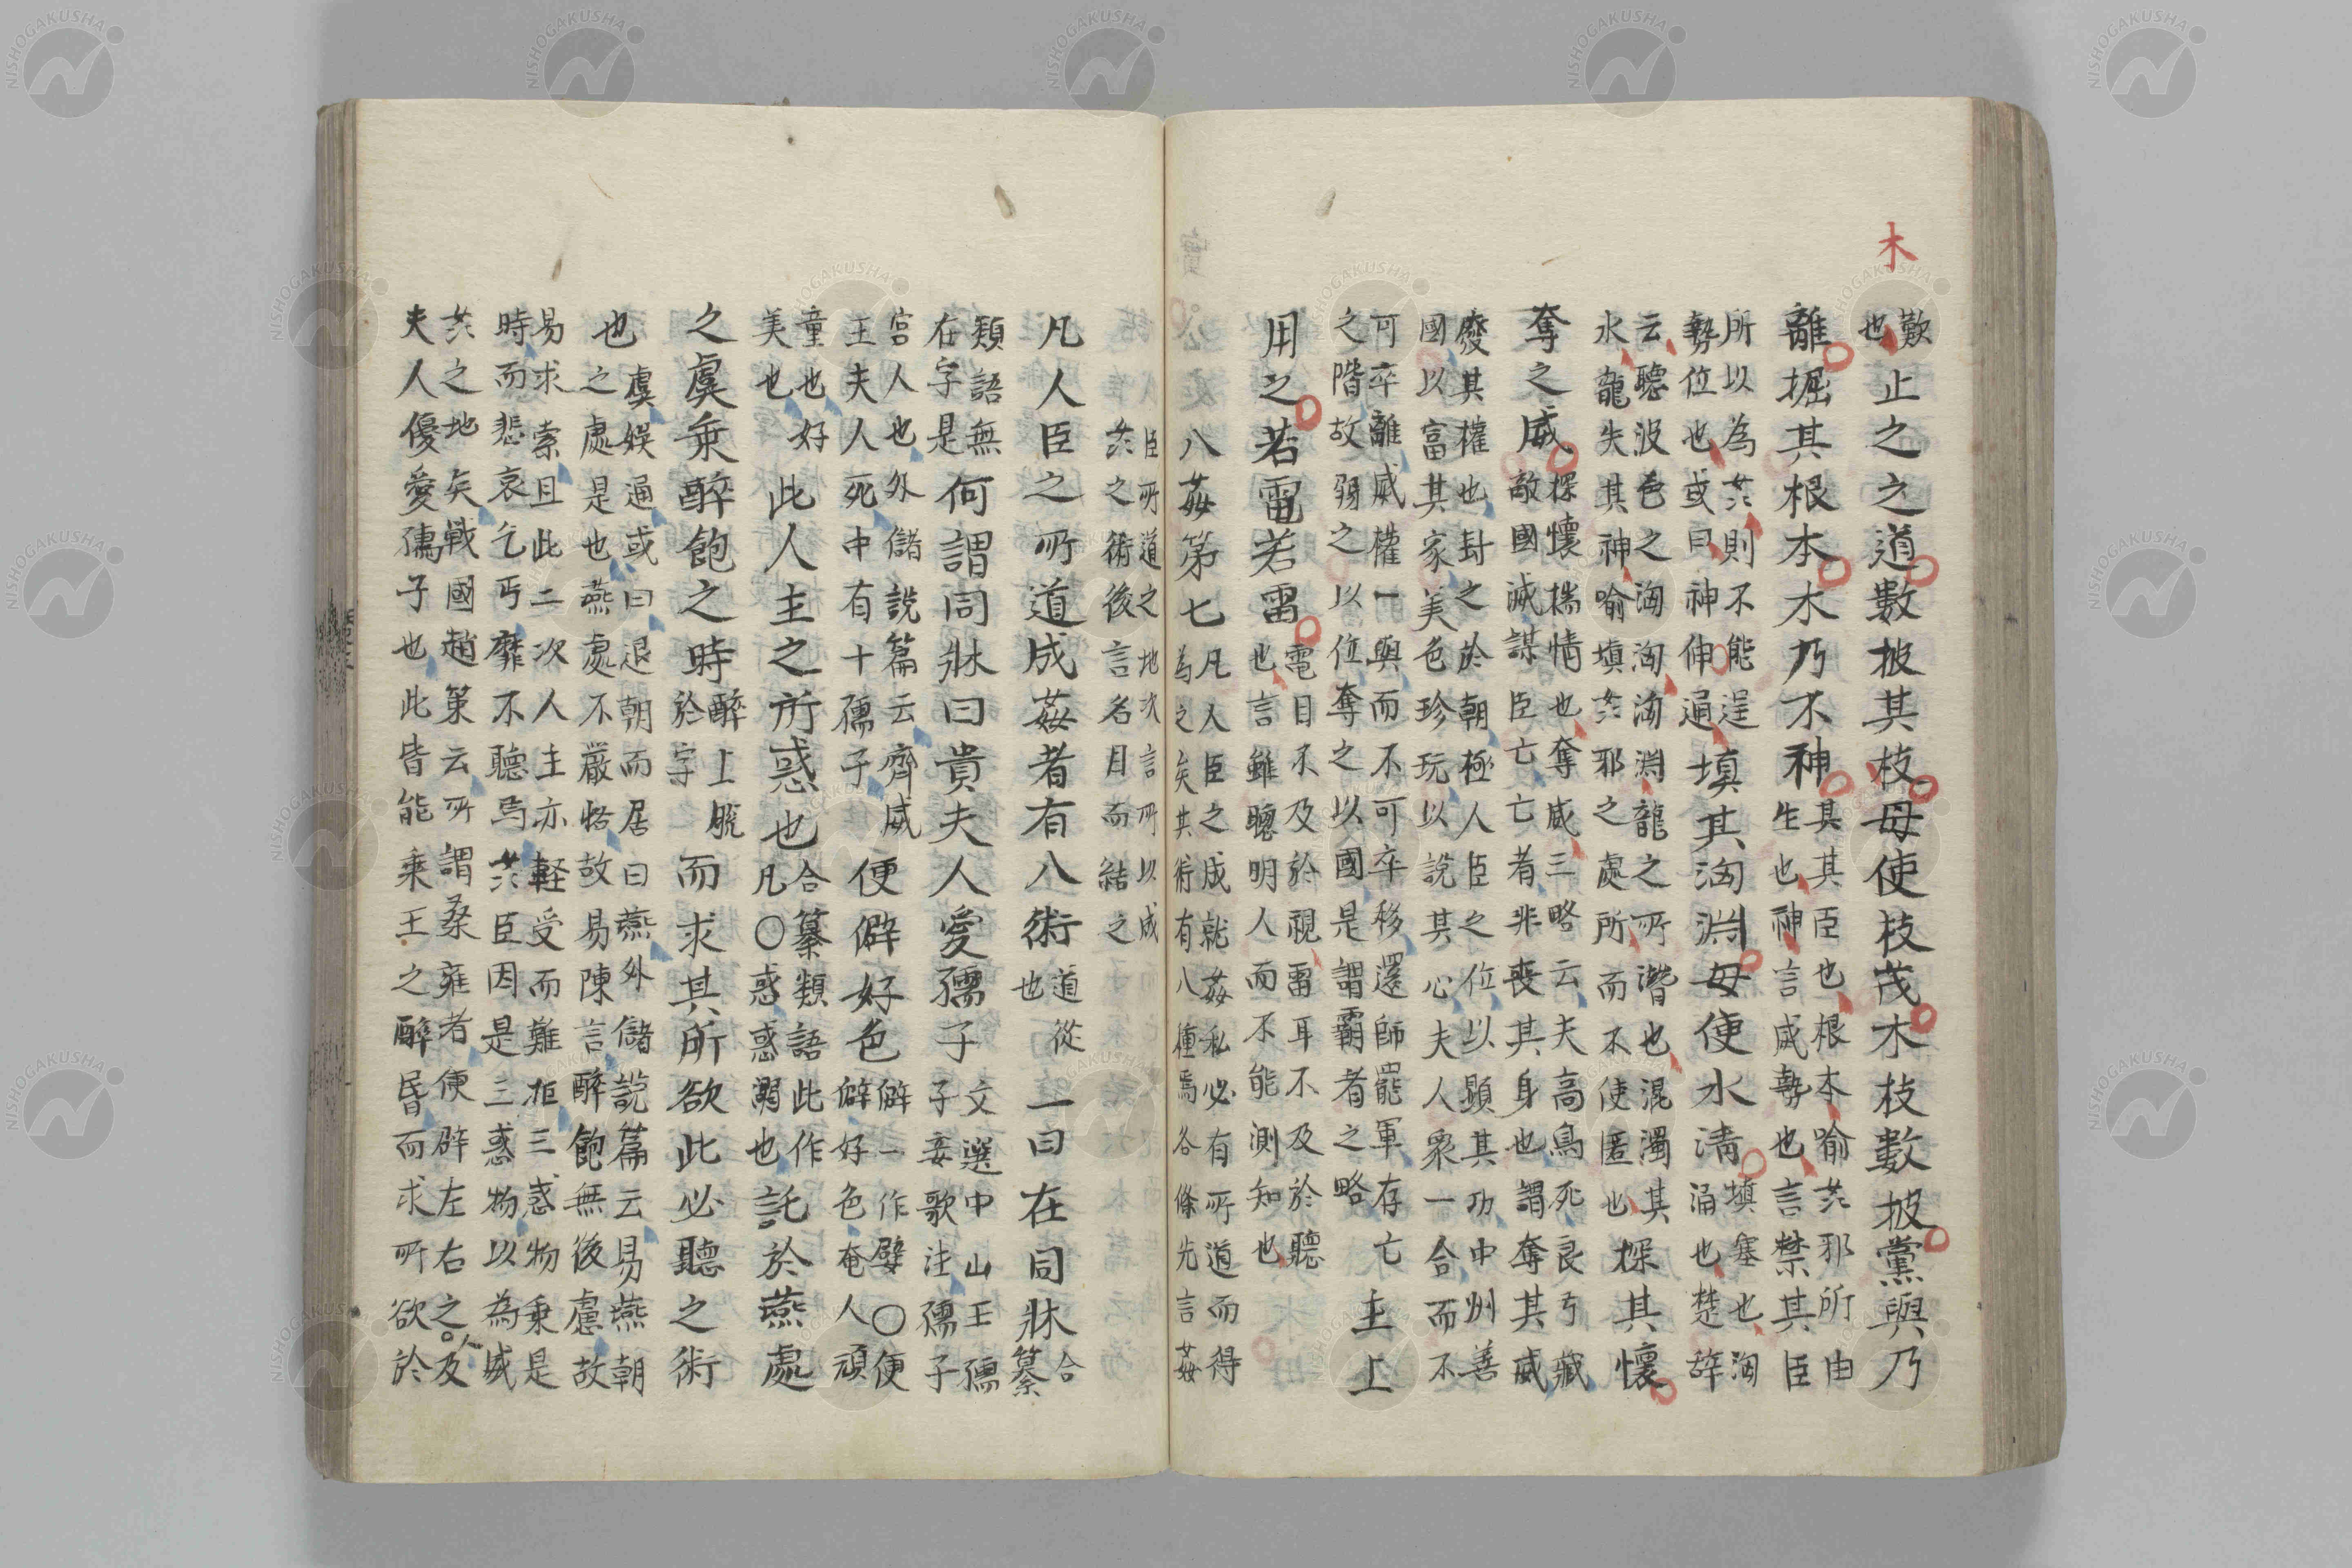 木
歎
也
止之之道數披其枝母使枝茂木枝數披黨與乃
離掘其根本木乃不神
其其臣也根本喻姦邪所由
生也神言威勢也言禁其臣
所以為姦則不能逞
勢位也或曰神伸通
填其洶淵母使水清
填塞也洶
涌也楚辞
云聽波色之洶洶洶淵龍之所潛也混濁其
水龍失其神喻填姦邪之處所而不使匿也
探其懷
奪之威
探懷揣情也奪威三略云夫高鳥死良弓藏
敵國滅謀臣亡亡者非喪其身也謂奪其威
廢其權也封之於朝極人臣之位以顯其功中州善
國以富其家美色珍玩以說其心夫人衆一合而不
可卒離威權一與而不可卒移還師罷軍存亡
之階故弱之以位奪之以國是謂霸者之略
主上
用之若電若雷
電目不及於視雷耳不及於聽
也言雖聰明人而不能測知也
八姦第七
凡人臣之成就姦私必有所道而得
為之矣其術有八種焉各條先言姦
臣所道之地次言所以成
姦之術後言名目而結之
凡人臣之所道成姦者有八術
道從
也
一曰在同牀
合
纂
類語無
在字是
何謂同牀曰貴夫人愛孺子
文選中山王孺
子妾歌注孺子
宮人也外儲說篇云齊威
王夫人死中有十孺子
便僻好色
僻一作嬖○便
僻好色奄人頑
童也好
美也
此人主之所惑也
合纂類語此作
凡○惑惑溺也
託於燕處
之虞乗醉飽之時
醉上脫
於字
而求其所欲此必聽之術
也
虞娛通或曰退朝而居曰燕外儲說篇云易燕朝
之處是也燕處不嚴恪故易陳言醉飽無後慮故
易求索且此二次人主亦軽受而難拒三惑物乗是
時而悲哀乞丐靡不聽焉姦臣因是三惑物以為威
姦之地矣戦國趙策云所謂桑雍者便辟左右之及
夫人優愛孺子也此皆能乗王之醉昏而求所欲於